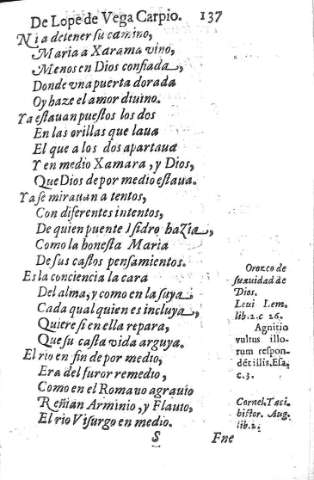 De Lope de Vega Carpio. 137
Ni a detener su camino,
Maria a Xarama vino,
Menos en Dios confiada,
Donde vna puerta dorada
Oy haze el amor diuino.
Ya estauan puestos los dos
En las orillas que laua
El que a los dos apartaua
Y en medio Xamara, y Dios,
Que Dios de por medio estaua.
Ya se mirauan atentos,
Con diferentes intentos,
De quien puente Isidro hazia,
Como la honesta Maria
De sus castos pensamientos.
Es la conciencia la cara
Del alma, y como en la suya,
Cada qual quien es incluya,
Quiere si en ella repara,
Que su casta vida arguya.
El rio en fin de por medio,
Era del furor remedio,
Como en el Romano agrauio
Reñian Arminio, y Flauio,
El rio Visurgo en medio.
Orozco de
suauidad de
Dios.
Leui Lem.
lib. 2. c 26.
Agnitio
vultus illo-
rum respon-
dèt illis. Esa,
c. 3.
Cornel. Taci.
histor. Aug.
lib. 2.
S Fue